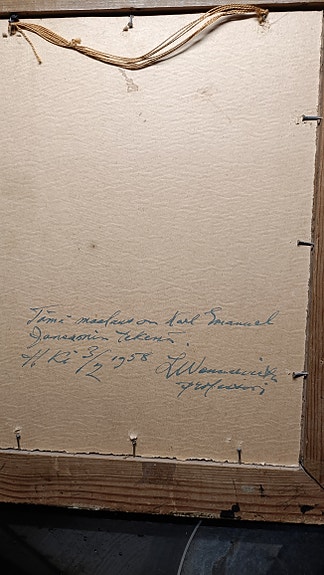 Tämä maalaus on Karl Emanuel
Janssonin tekemä.
H:ki 3/2 1958 L Wennervirta
professori